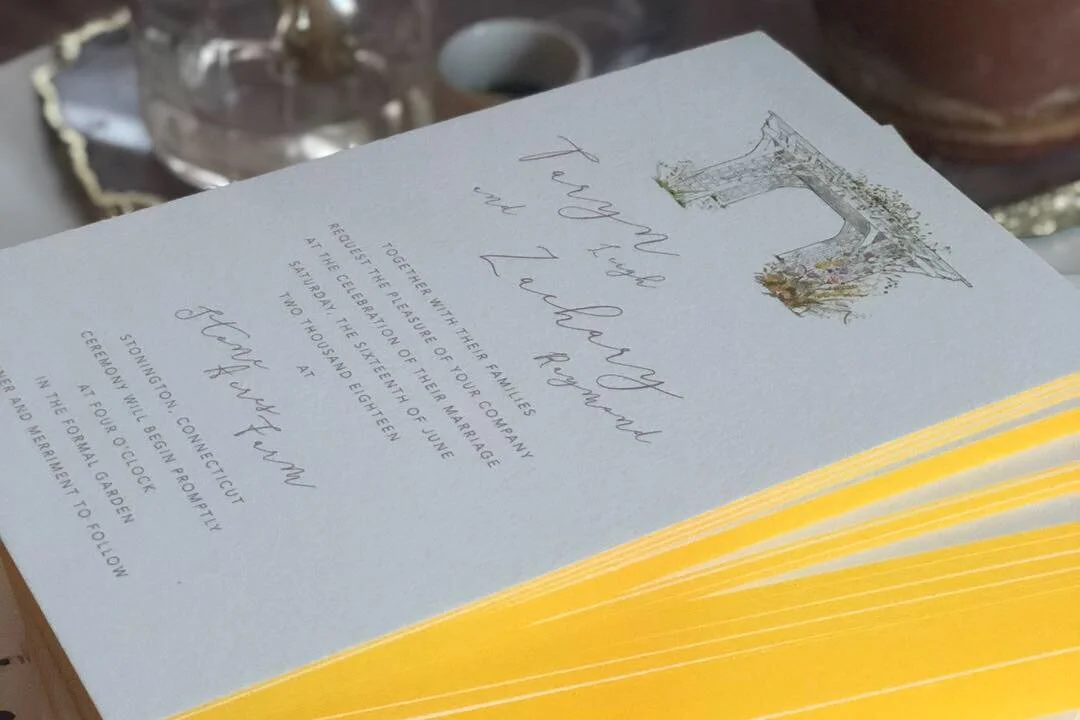 Taryn
Leigh
and
Zachary
Raymond
TOGETHER WITH THEIR FAMILIES
REQUEST THE PLEASURE OF YOUR COMPANY
AT THE CELEBRATION OF THEIR MARRIAGE
SATURDAY, THE SIXTEENTH OF JUNE
TWO THOUSAND EIGHTEEN
AT
Stone
Acres Farm
STONINGTON, CONNECTICUT
CEREMONY WILL BEGIN PROMPTLY
AT FOUR O'CLOCK
IN THE FORMAL GARDEN
NER AND MERRIMENT TO FOLLOW